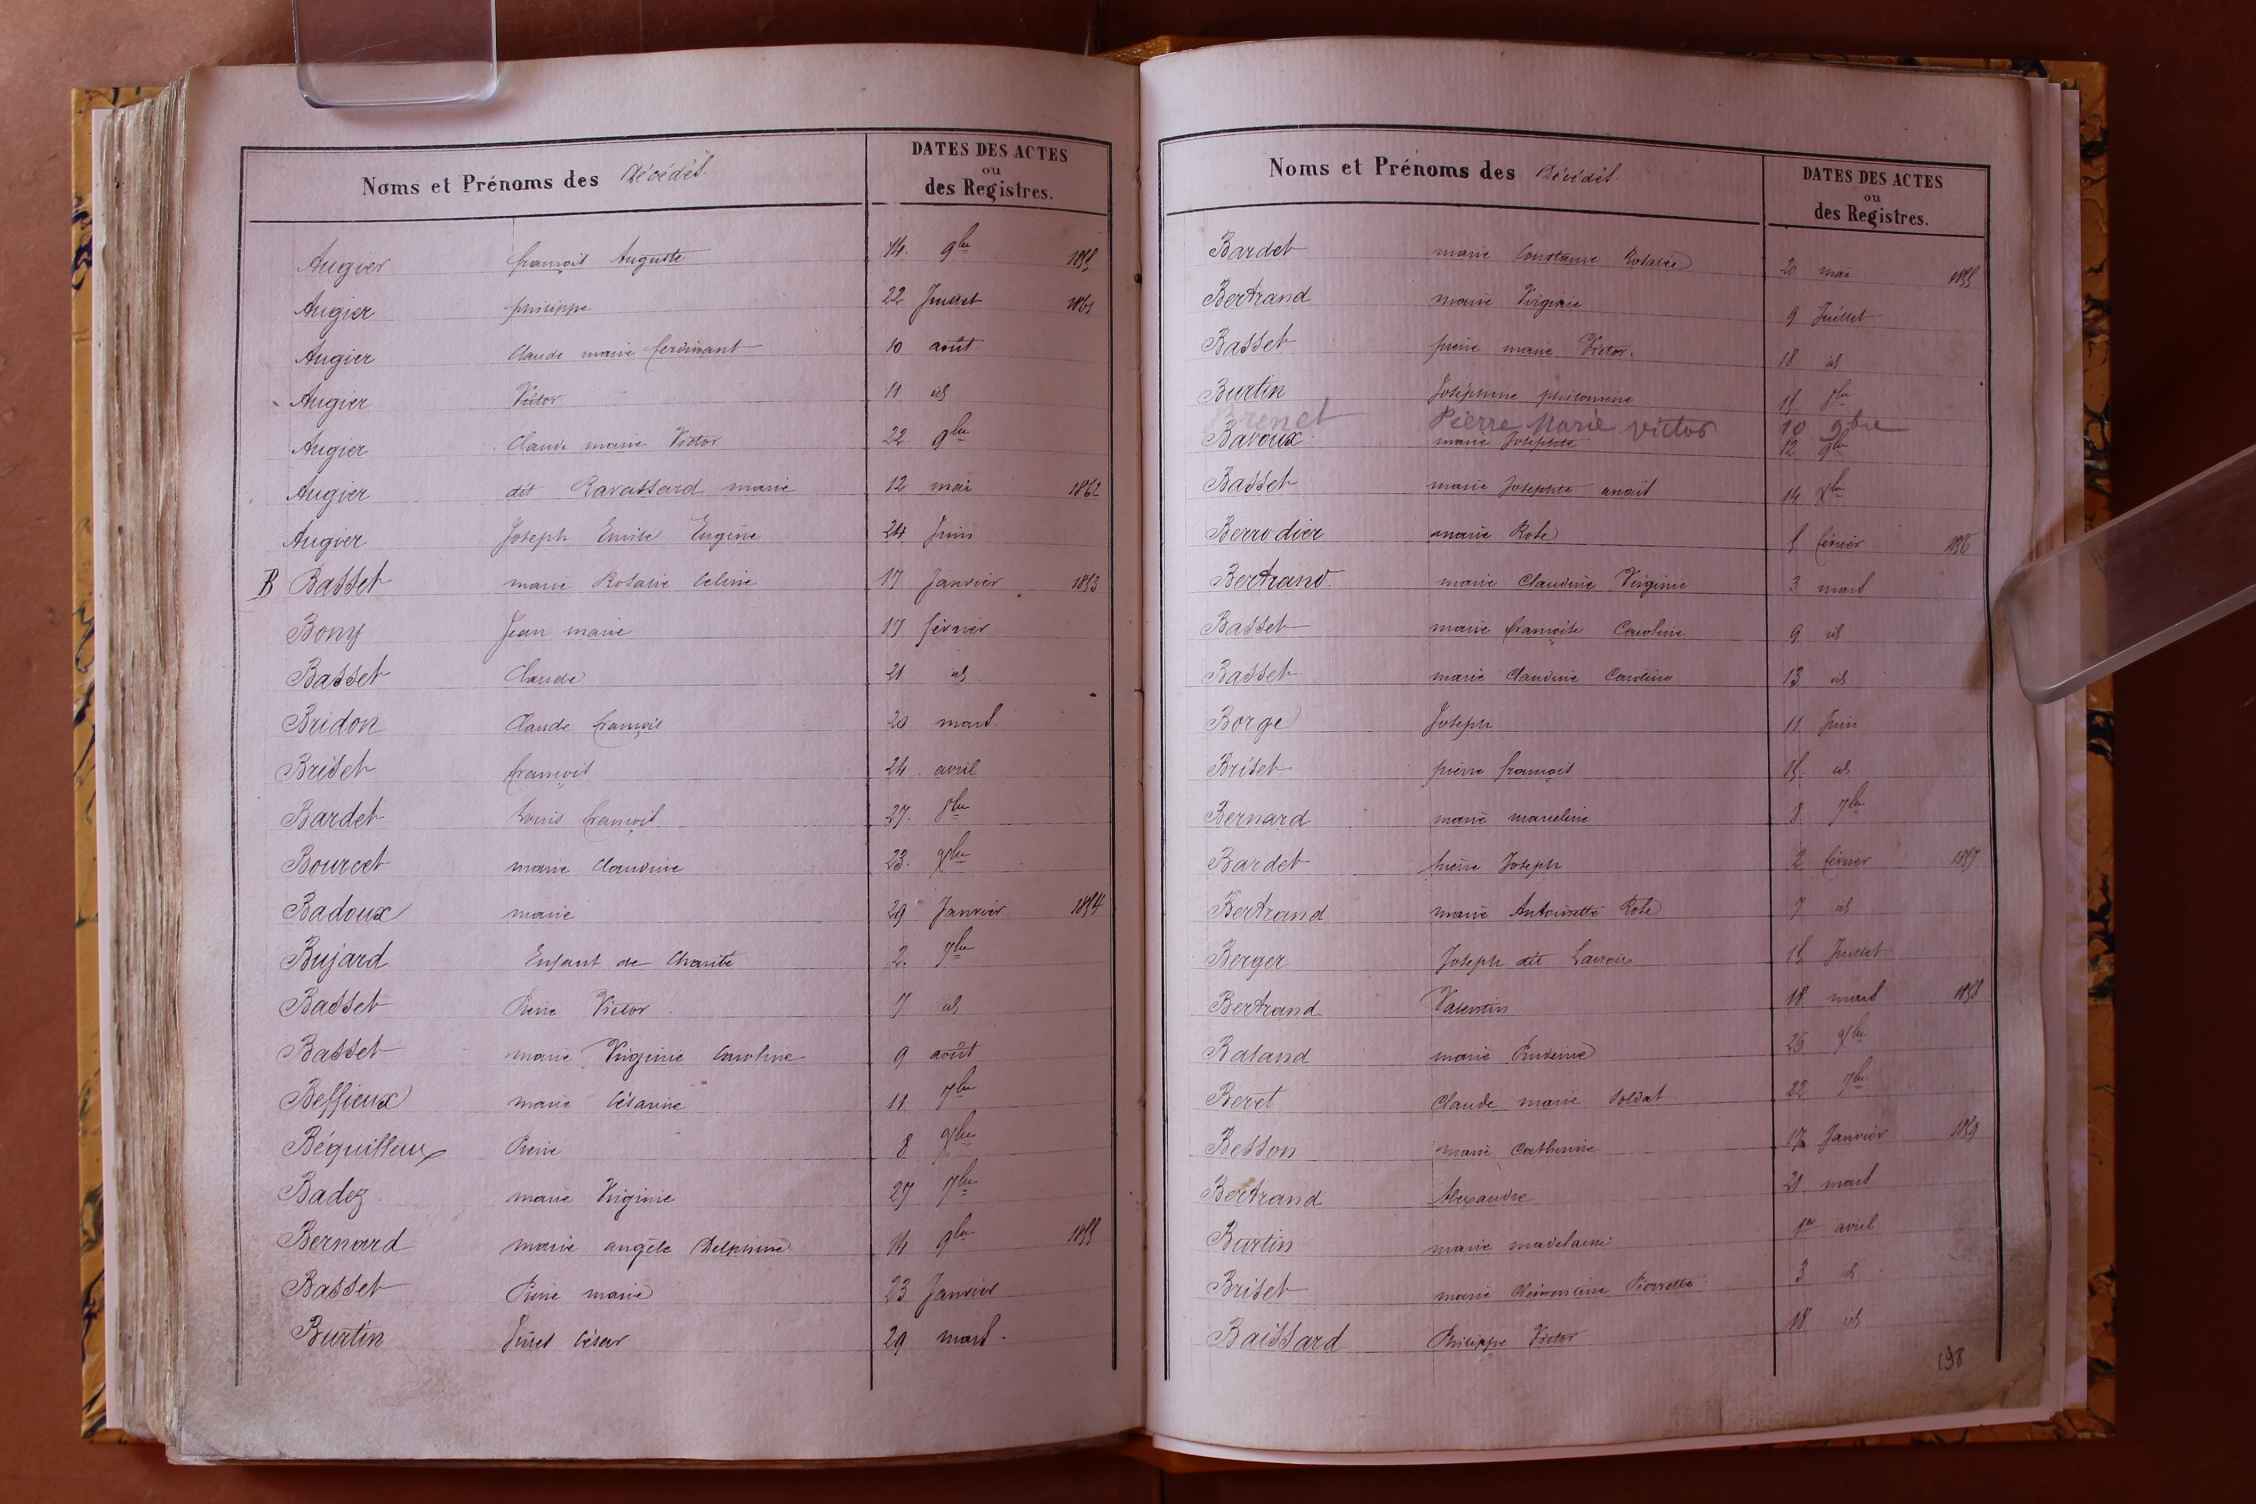 Noms et Prénoms des Décédés
DATES DES ACTES
ou
des Registres.
Augier françois Auguste 14 9bre
Augier philippe 22 Juillet 1861
Augier Claude marie ferdinant 10 août
Augier Victor 11 id
Augier Claude marie Victor 22 9bre
Augier dit Ravassard marie 12 mai 1862
Augier Joseph Emile Eugène 24 Juin
B Basset marie Rosalie Celine 17 Janvier 1853
Bony Jean marie 17 février
Basset Claude 21 id
Bridon Claude françois 20 mars
Briset françois 24 avril
Bardet Louis françois 27 8bre
Bourcet marie Claudine 23 Xbre
Badoux marie 29 Janvier 1854
Bujard Enfant de Charité 2
Basset Pierre Victor 7 id
Basset marie Virginie Caroline 9 août
Beffieux marie Césarine 11 7bre
Béquilleux Pierre 8
Badez marie Virginie 27
Bernard marie angèle Delphine 14 9bre 1855
Basset Pierre marie 23 Janvier
Burtin César 29 mars
Noms et Prénoms des Décédés
DATES DES ACTES
ou
des Registres.
Bardet marie Constance Rosalie 20 mai 1855
Bertrand marie Virginie 9 Juillet
Basset pierre marie Victor 18 id
Burtin Joséphine philomène 15 8bre
Brenet Pierre Marie victor 10 9bre
Bavoux marie Josephte 12 9bre
Basset marie Josephte anaïs 14 Xbre
Berrodier marie Rose 5 février 1856
Bertrand marie Claudine Virginie 3 mars
Basset marie françoise Caroline 9 id
Basset marie Claudine Caroline 13 id
Borge Joseph 11 Juin
Briset pierre françois 15 id
Bernard marie marceline 8 7bre
Bardet pierre Joseph 2 février 1857
Bertrand marie Antoinette Rose 7 id
Berger Joseph dit 15 Juillet
Bertrand Valentin 18 mars 1858
Baland marie 25
Beret Claude marie Soldat 22 7bre
Besson marie Catherine 17 Janvier 1859
Bertrand Alexandre 21 mars
Burtin marie madelaine 1er avril
Briset marie Pierrette 3 id
Baissard Philippe Victor 18 id
198